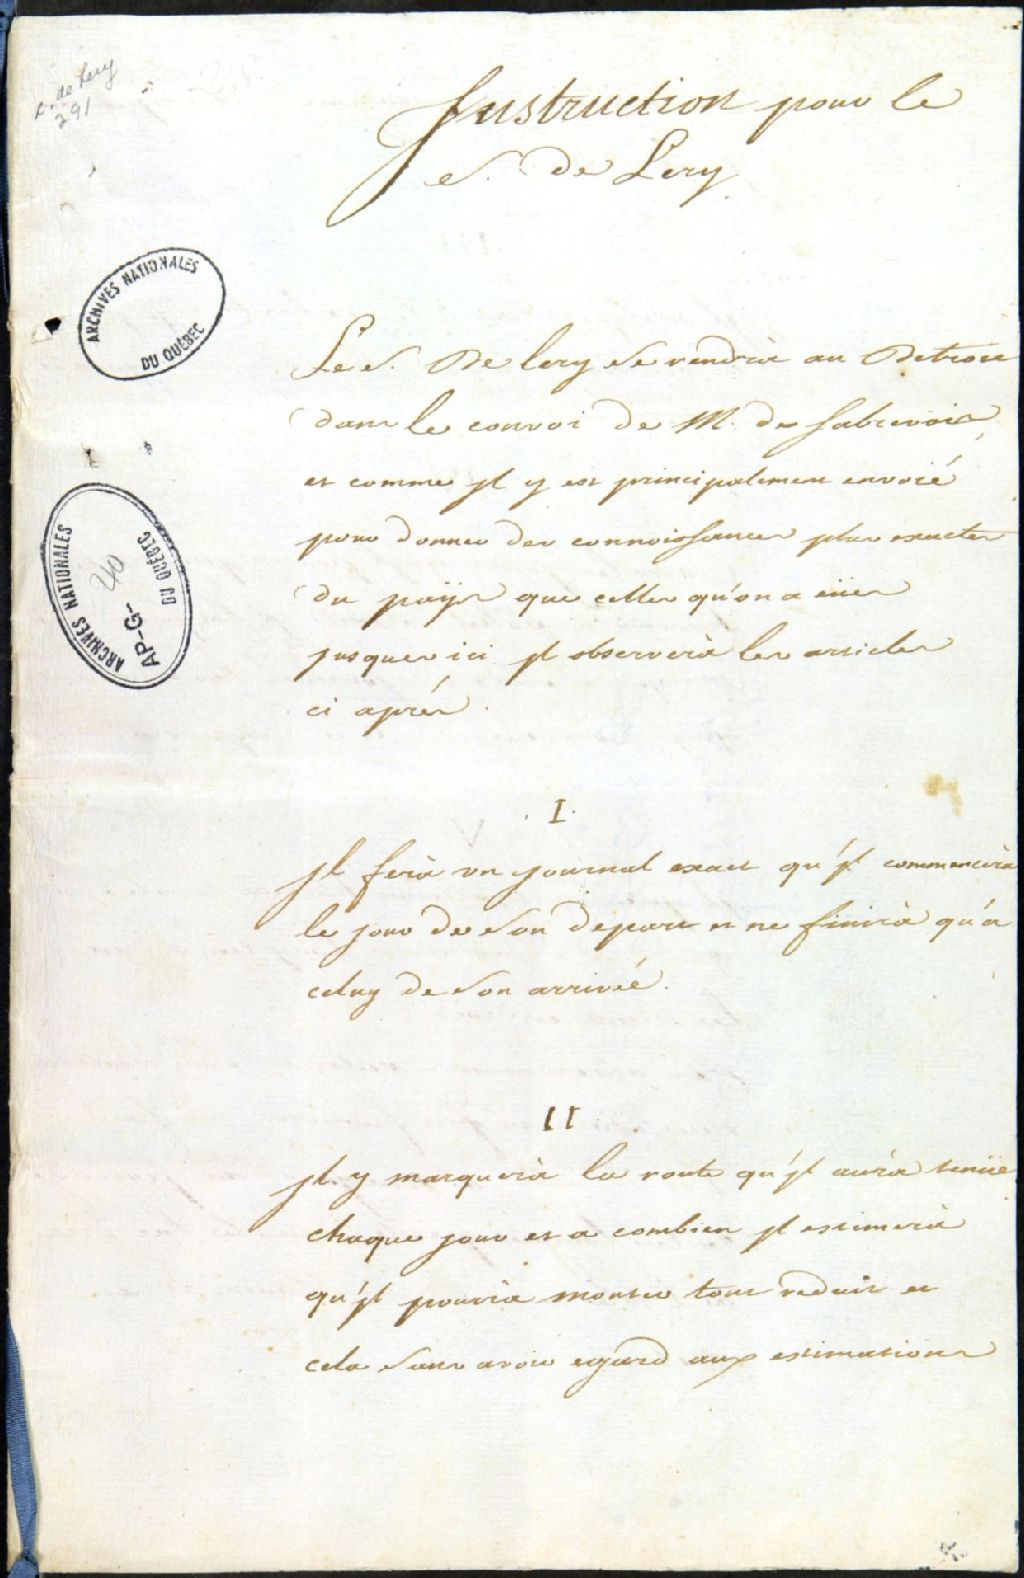 L. de Lery
291
Instruction pour le
S. De Lery
ARCHIVES NATIONALES
DU QUÉBEC
Le S. De lery se rendrà au Detroit
dans le convoi de M. de Sabrevois,
et comme jl y est principalement envoié
pour donner des connoissances plus exactes
du païs que celles qu'on a eües
jusques ici jl observerà les articles
ci aprés.
ARCHIVES NATIONALES
DU QUÉBEC
40
AP-G-
I.
jl ferà un journal exact qu'jl commencerà
le jour de son depart et ne finirà qu'a
celuy de son arrivée.
II
jl y marquerà la route qu'jl aurà tenüe
chaque jour et a combien jl estimerà
qu'jl pourrà monter tout reduit et
cela sans avoir egard aux estimations